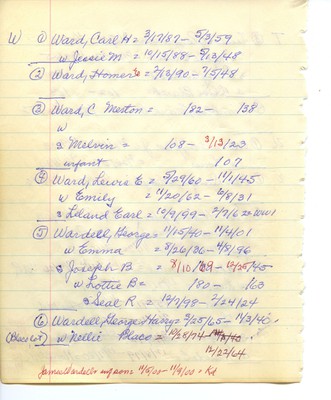 W ① Ward, Carl H = 3/17/87 - 5/3/59
w Jessie M = 10/15/88 - 5/13/48
② Ward, Homer = 2/13/90 - 7/5/48
③ Ward, C Merton = /82 - /38
w
s Melvin = /08 - 3/13/23
infant /07
④ Ward, Lewie E = 5/29/60 - 11/1/45
w Emily = 11/20/62 - 10/8/31
s Leland Earl = 10/9/99 - 2/7/62
⑤ Wardell, George = 11/15/40 - 11/4/01
w Emma = 8/26/36 - 4/8/96
s Joseph B = /10/69 - 12/25/45
w Lottie B = 180 - /63
s Seal R = 12/7/98 - 2/24/24
⑥ Wardell, George Harry = 3/25/65 - 11/3/40
w Nellie Place = 10/28/74 -
12/27/64
James Wardell's inf sons 11/5/00 - 11/9/00 = Rd